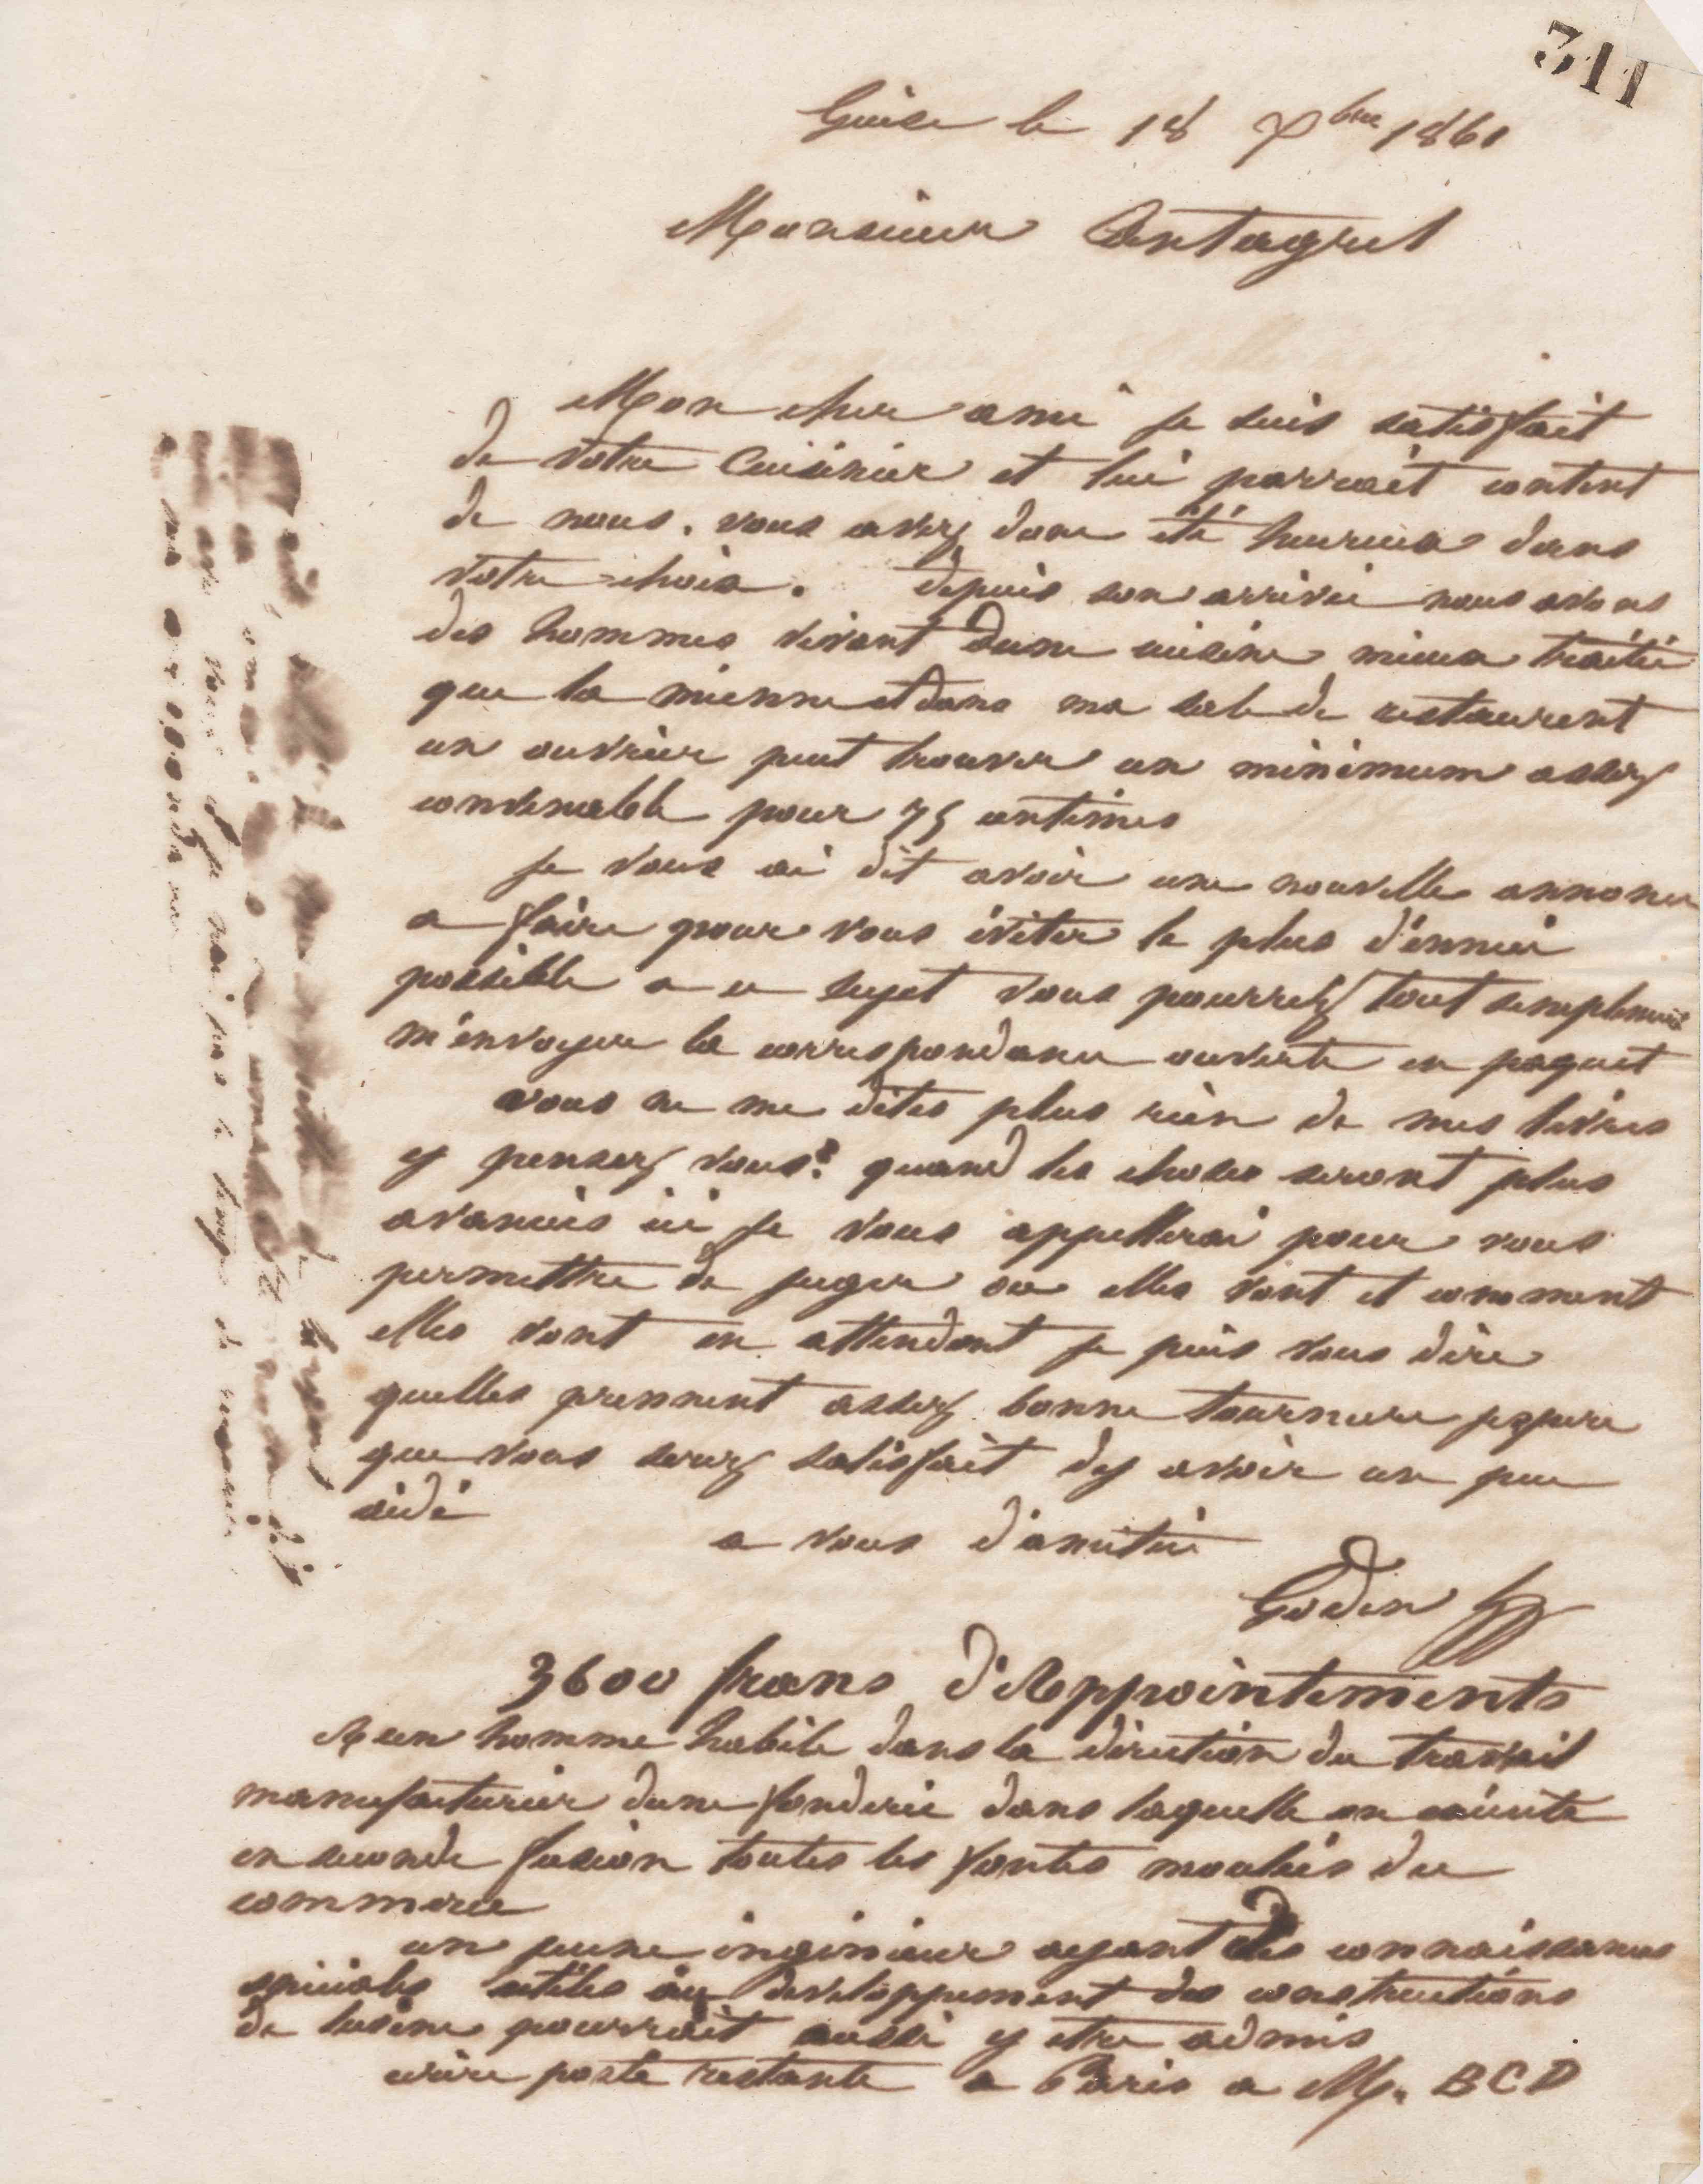 311
Guise le 18 Xbre 1860
Monsieur Cantagrel
Mon cher ami je suis satisfait
de votre Cuisinier et lui parrait content
de nous. vous avez donc été heureux dans
votre choix. depuis son arrivée nous avons
des hommes vivant dune cuisine mieux traitée
que la mienne et dans ma sale de restaurent
un ouvrier peut trouver un minimum assez
convenable pour 75 centimes
je vous ai dit avoir une nouvelle annonce
a faire pour vous éviter le plus d'ennui
possible a ce sujet vous pourrez tout simplement
m'envoyer la correspondance ouverte en paquet
vous ne me dites plus rien de mes livres
y pensez vous? quand les choses seront plus
avancées ici je vous appellerai pour vous
permettre de juger ou elles vont et comment
elles vont en attendant je puis vous dire
quelles prennent assez bonne tournure jespere
que vous serez satisfait dy avoir un peu
aidé
a vous d'amitié
Godin
3600 frans d'Appointements
A un homme habile dans la direction du travail
manufacturier dune fonderie dans laquelle on exécute
en seconde fusion toutes les fontes moulées du
commerce
un jeune ingénieur ayant des connaissances
spéciales utiles au développement des constructions
de lusine pourrait aussi y etre admis
ecrire poste restante a Paris a M. BCD